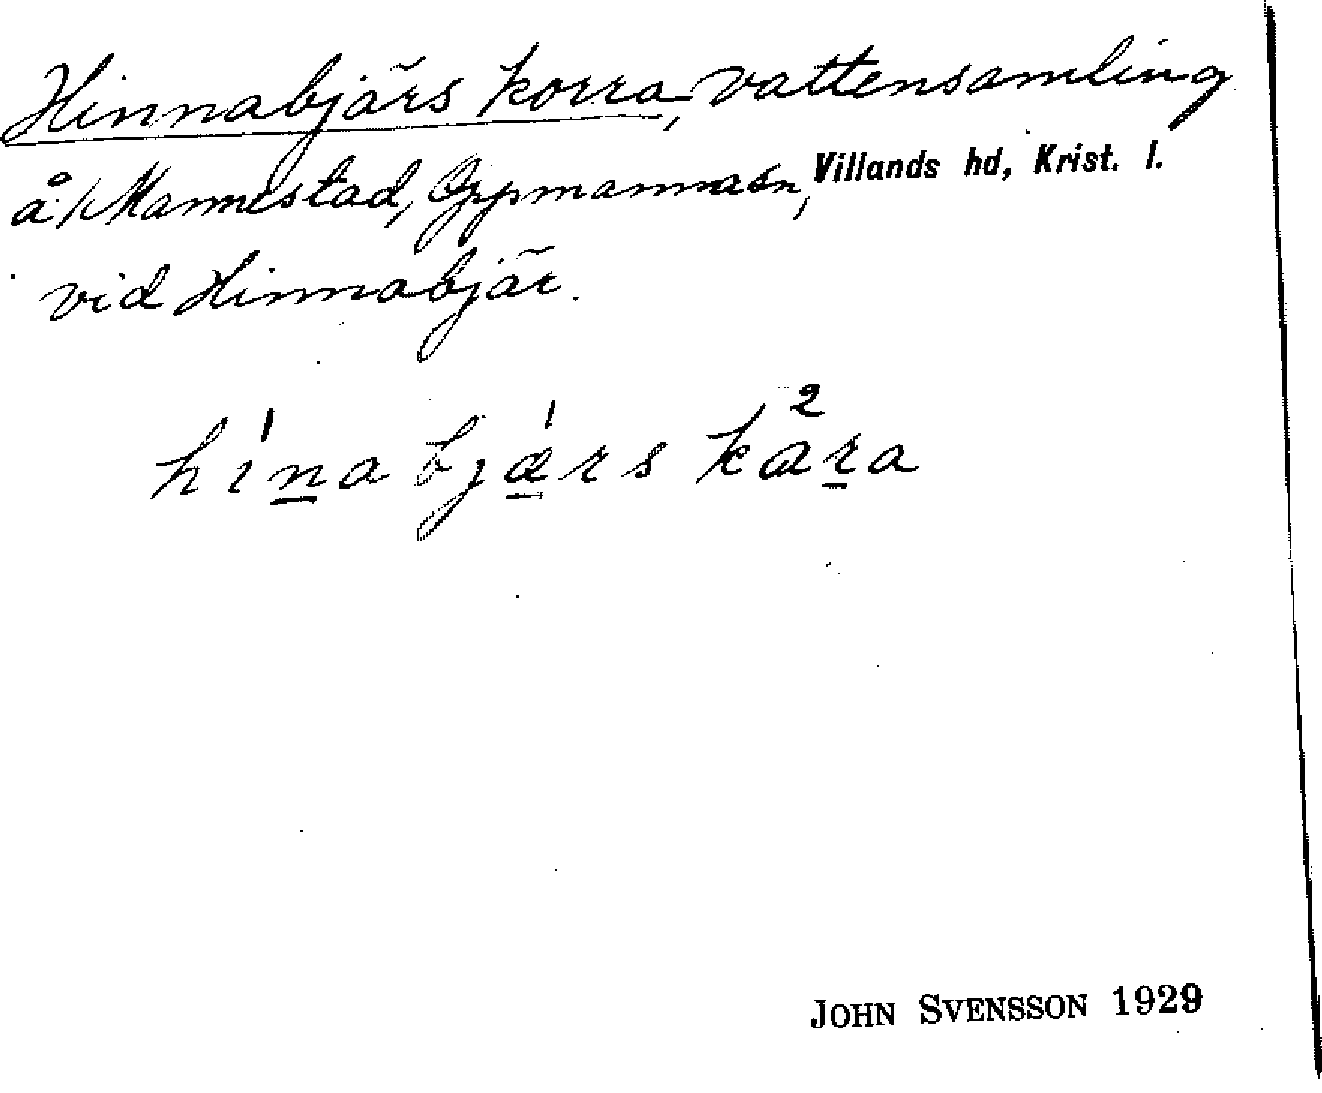 Hinnabjärs korra, vattensamling
å Mannestad, Oppmanna sn, Villands hd, Krist. l.
vid Hinnabjär.
hı́na bjǽrs kå²ra
JOHN SVENSSON 1929